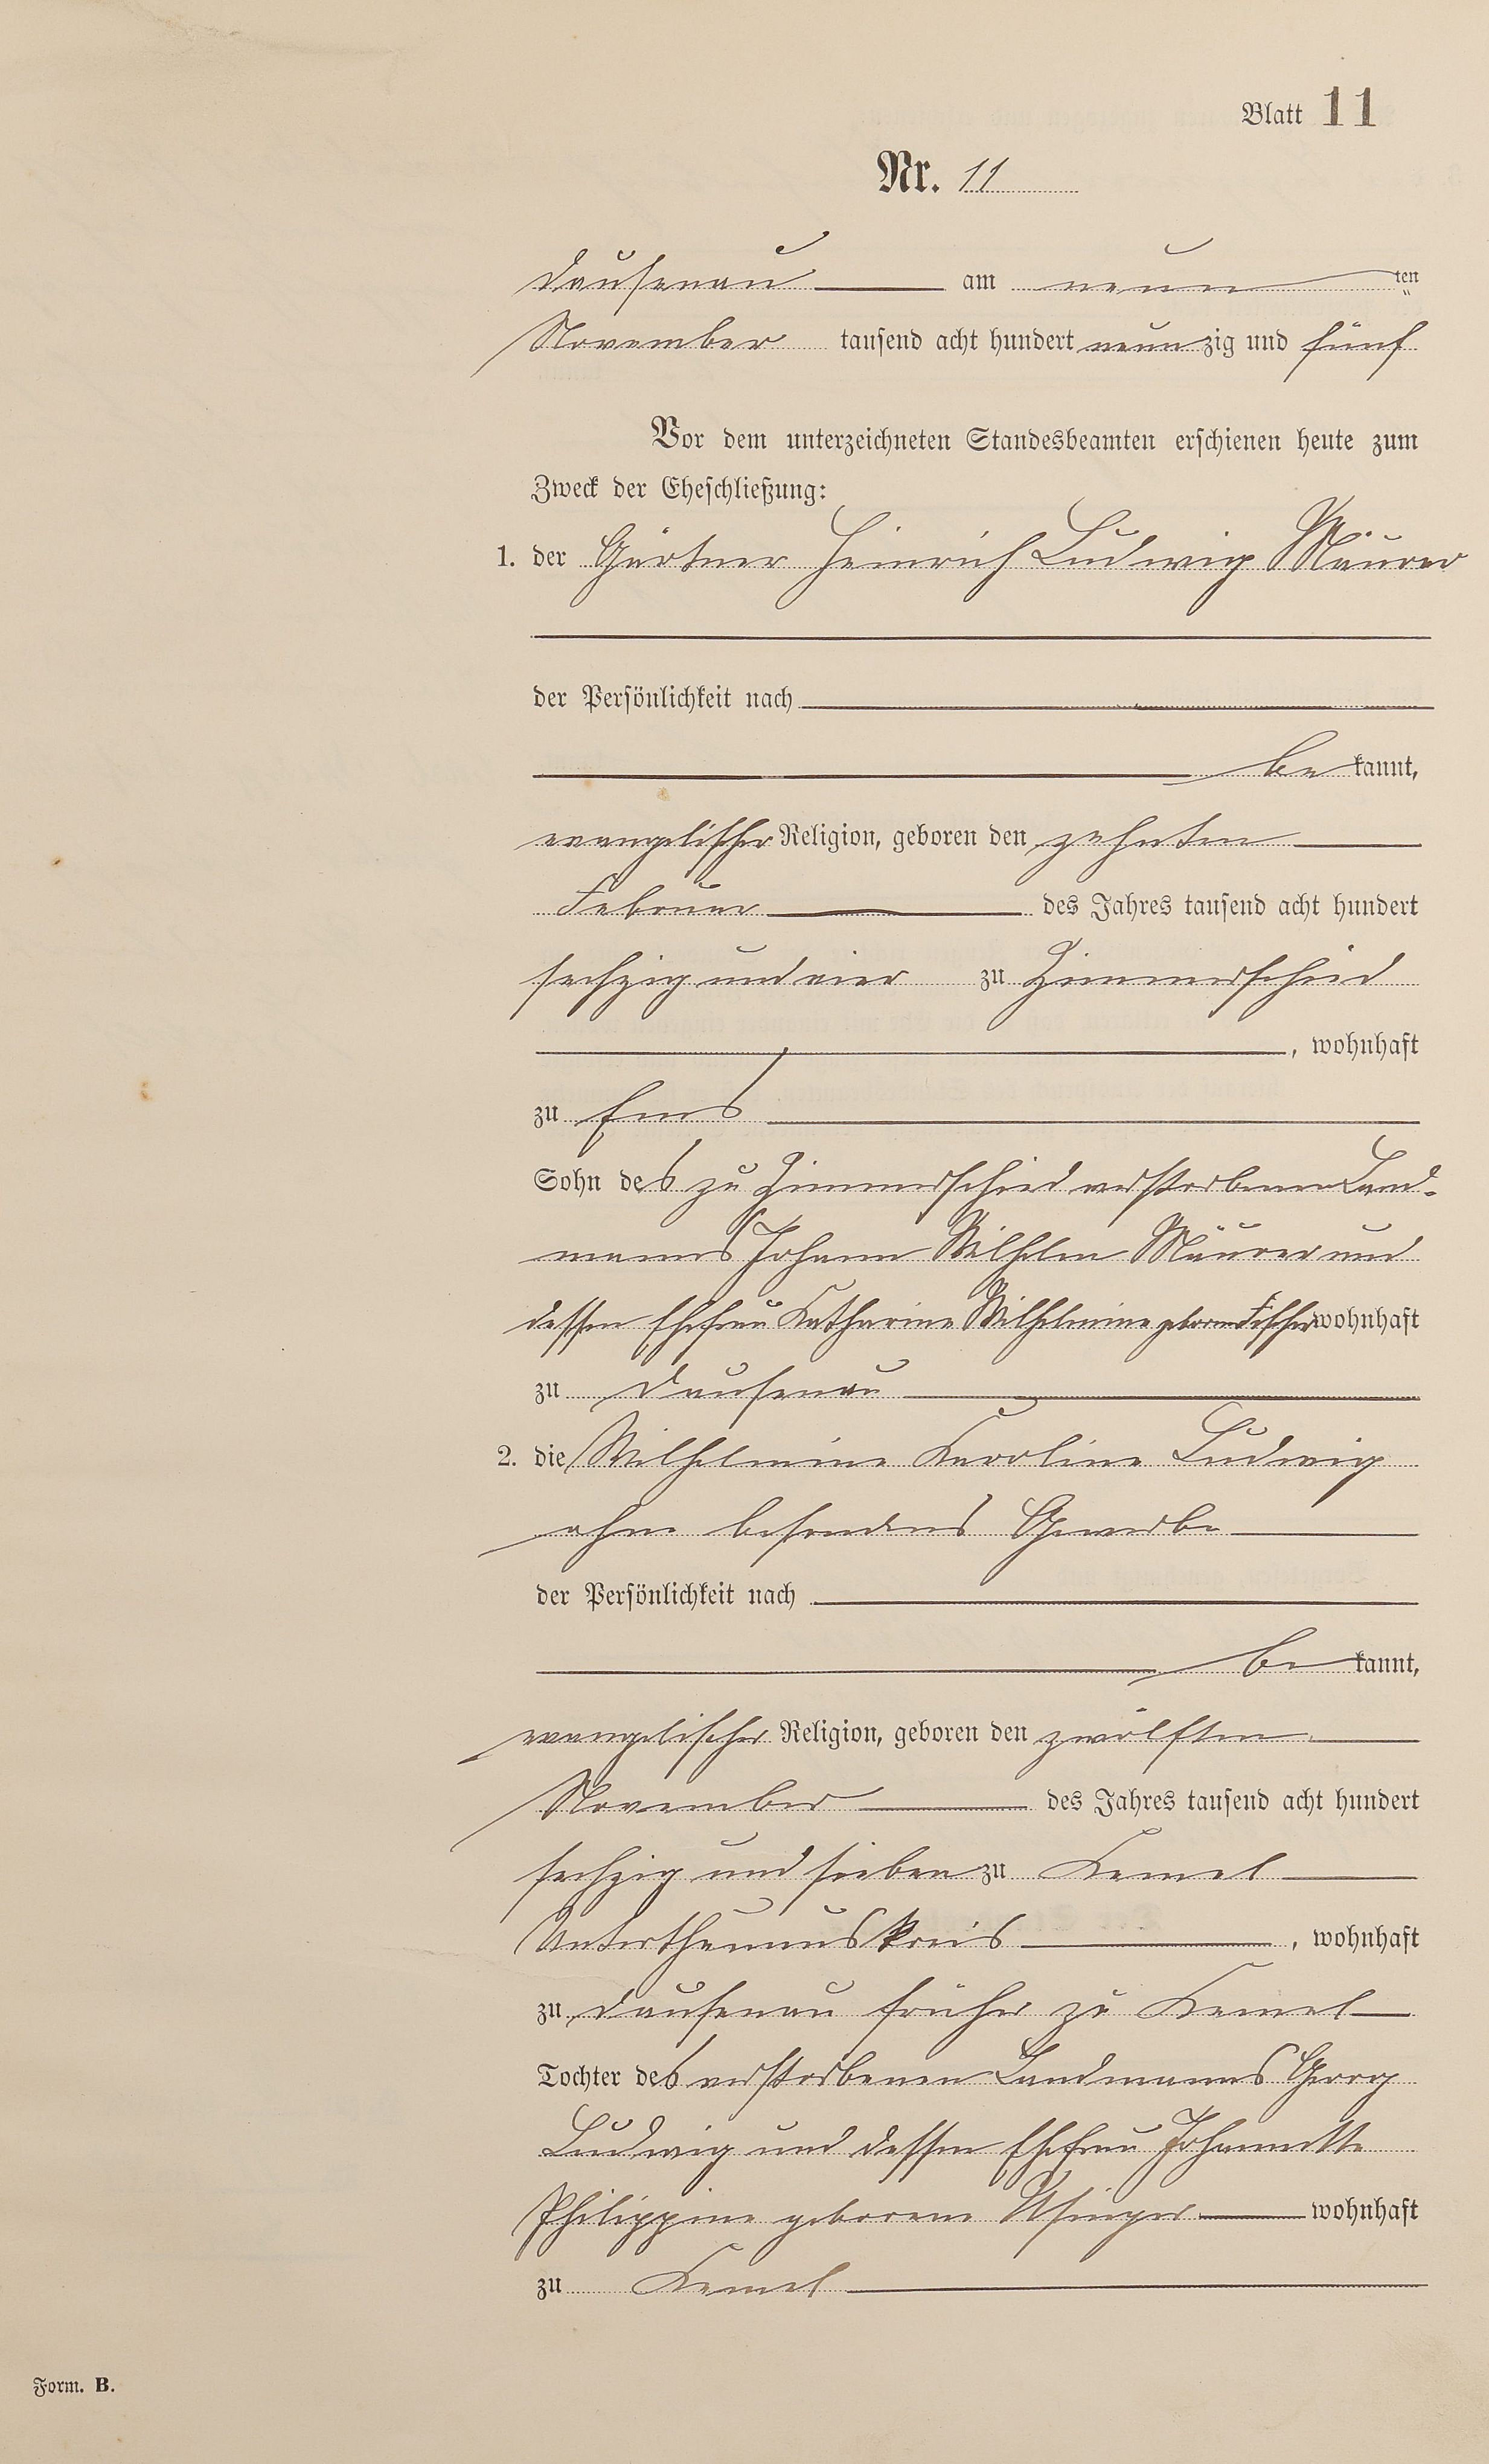 Blatt 11
Nr. 11
Dausenau am neun ten
November tausend acht hundert neunzig und fünf
Vor dem unterzeichneten Standesbeamten erschienen heute zum
Zweck der Eheschließung:
1. der Gärtner Heinrich Ludwig Mäurer
der Persönlichkeit nach
be kannt,
evangelischer Religion, geboren den zehnten
Februar des Jahres tausend acht hundert
sechzig und vier zu Zimmerschied
, wohnhaft
zu Ems
Sohn des zu Zimmerschied verstorbenen Land-
manns Johann Wilhelm Mäurer und
dessen Ehefrau Katharine Wilhelmine geborene Fischer wohnhaft
zu Dausenau
2. die Wilhelmine Karoline Ludwig
ohne besonderes Gewerbe
der Persönlichkeit nach
be kannt,
evangelischer Religion, geboren den zwölften
November des Jahres tausend acht hundert
sechzig und sieben zu Kemel
Unterthaunuskreis , wohnhaft
zu Dausenau früher zu Kemel
Tochter des verstorbenen Landmanns Georg
Ludwig und dessen Ehefrau Johannette
Philippine geborene Usinger wohnhaft
zu Kemel
Form. B.